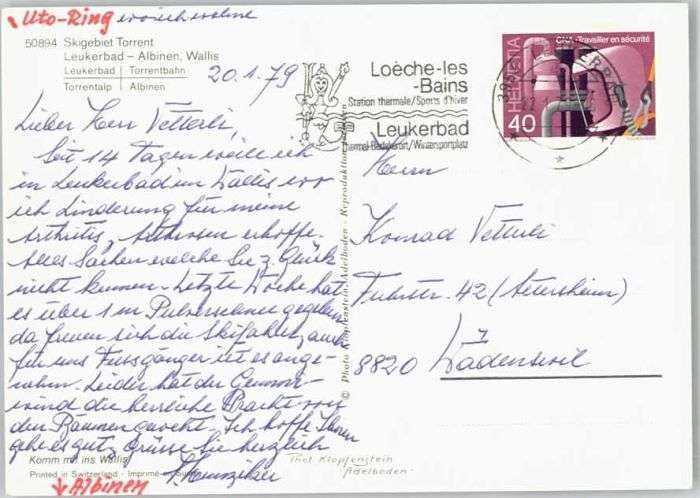 Uto-Ring wo ich wohne
50894 Skigebiet Torrent
Leukerbad – Albinen, Wallis
Leukerbad | Torrentbahn
Torrentalp | Albinen
20.1.79
Lieber Herr Vetterli,
Seit 14 Tagen weile ich
in Leukerbad im Wallis wo
ich Linderung für meine
Arthritis, Arthrosen erhoffe.
Alles Sachen welche Sie z. Glück
nicht kennen. Letzte Woche hat
es über 1 m Pulverschnee gegeben
da freuen sich die Skifahrer, auch
für uns Fussgänger ist es ange-
nehm. Leider hat der
wind die herrliche Pracht von
den Bäumen gefegt. Ich hoffe Ihnen
gehe es gut, Grüsse Sie herzlich
Komm mit ins Wallis
Printed in Switzerland - Imprimé en Suisse
Albinen
© Photo Klopfenstein, Adelboden - Reproduktion verboten
Phot Klopfenstein
Adelboden
Loèche-les
-Bains
Station thermale/Sports d'hiver
Leukerbad
Thermal-Badekurort/Wintersportplatz
CNA · Travailler en sécurité
HELVETIA
40
Herrn
Konrad Vetterli
Fuhrstr. 42 (Altersheim)
8820 Wädenswil